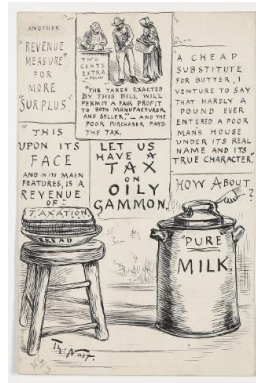 ANOTHER
"REVENUE
MEASURE"
FOR
MORE
"SURPLUS".
TWO
CENTS
EXTRA
A POUND
"THE TAXES EXACTED
BY THIS BILL WILL
PERMIT A FAIR PROFIT
TO BOTH MANUFACTURER
AND SELLER," — AND THE
POOR PURCHASER PAYS
THE TAX.
A CHEAP
SUBSTITUTE
FOR BUTTER, I
VENTURE TO SAY
THAT HARDLY A
POUND EVER
ENTERED A POOR
MAN'S HOUSE
UNDER ITS REAL
NAME AND ITS
TRUE CHARACTER."
"THIS
UPON ITS
FACE
AND IN ITS MAIN
FEATURES, IS A
REVENUE
OF -
TAXATION
BREAD
LET US
HAVE A
TAX
ON
OILY
GAMMON.
HOW ABOUT
?
"PURE"
MILK.
Th: Nast.